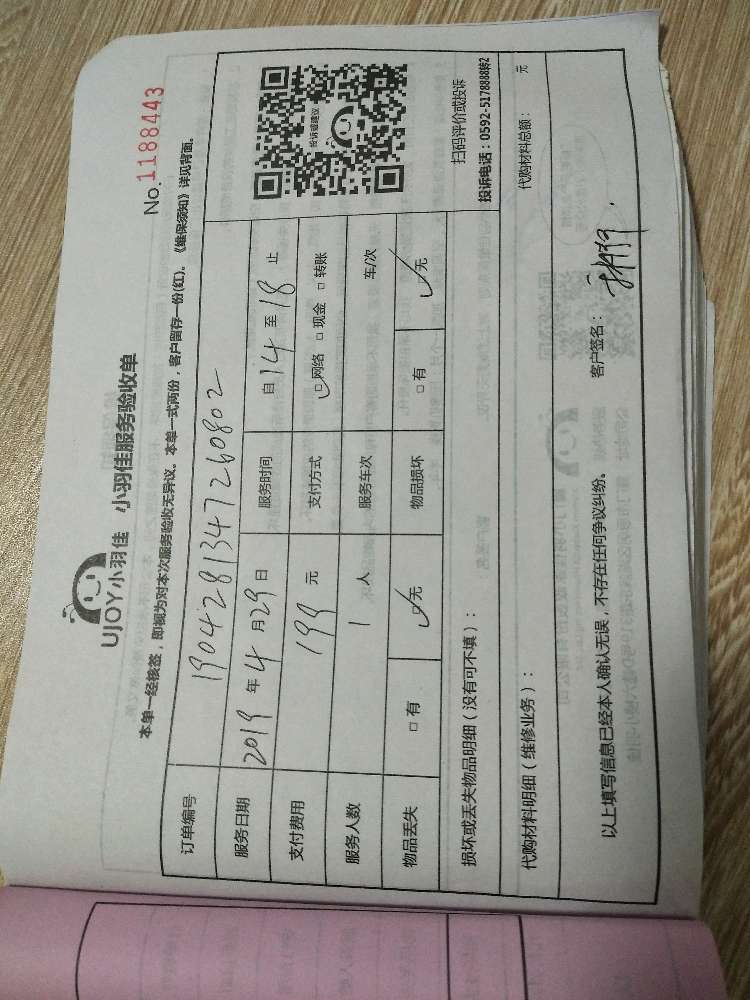 UJOY小羽佳 小羽佳服务验收单
No.1188443
本单一经核签，即视为对本次服务验收无异议。本单一式两份，客户留存一份(红)。《维保须知》详见背面。
订单编号 190428134726​0802
服务日期 2019 年 4 月 29 日 服务时间 自 14 至 18 止
支付费用 199 元 支付方式 ☑网络 □现金 □转账
服务人数 1 人 服务车次 车/次
物品丢失 □有 ☑无 物品损坏 □有 ☑无
投诉或建议
扫码评价或投诉
投诉电话：0592-5178888转2
损坏或丢失物品明细（没有可不填）：
代购材料明细（维修业务）： 代购材料总额： 元
以上填写信息已经本人确认无误，不存在任何争议纠纷。 客户签名：